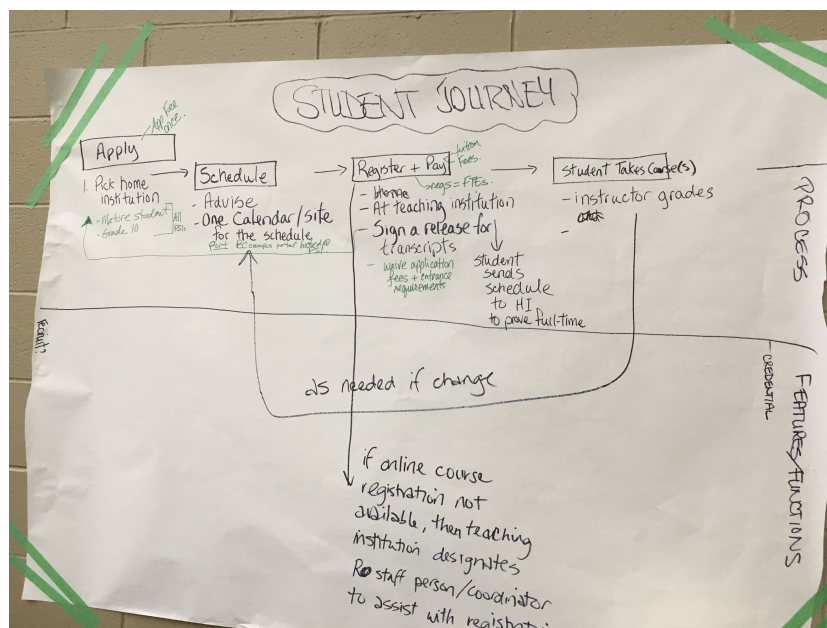 STUDENT JOURNEY
App Fee
once.
Apply
1. Pick home
institution
- Mature student
- Grade 10
All
PSIs
Schedule
- Advise
- One Calendar/site
for the schedule
Register + Pay
tuition
Fees.
- Home
regs = FTEs.
- At teaching institution
- Sign a release for
transcripts
- waive application
fees + entrance
requirements
student
sends
schedule
to HI
to prove full-time
Student Takes Course(s)
- instructor grades
-
PROCESS
recruit?
as needed if change
CREDENTIAL
FEATURES/FUNCTIONS
if online course
registration not
available, then teaching
institution designates
staff person/coordinator
to assist with